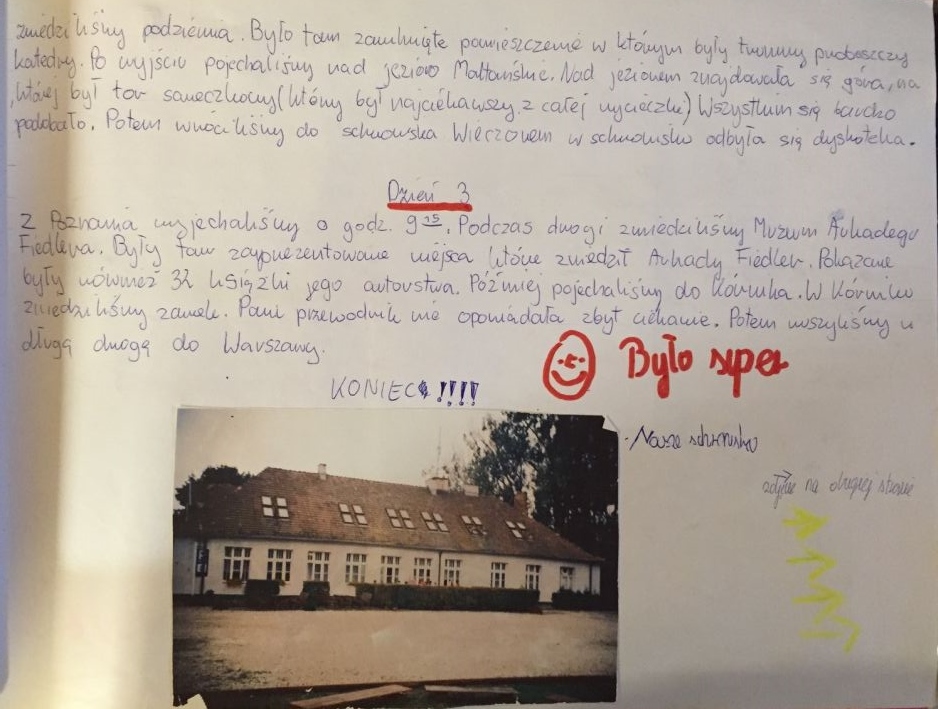 zwiedziliśmy podziemia. Było tam zamknięte pomieszczenie w którym były trumny proboszczy
katedry. Po wyjściu pojechaliśmy nad jezioro Maltańskie. Nad jeziorem znajdowała się góra, na
której był tor saneczkowy (który był najciekawszy z całej wycieczki) Wszystkim się bardzo
podobało. Potem wróciliśmy do schroniska Wieczorem w schronisku odbyła się dyskoteka.
Dzień 3
Z Poznania wyjechaliśmy o godz. 9 15. Podczas drogi zwiedziliśmy Muzeum Arkadego
Fiedlera. Były tam zaprezentowane miejsca które zwiedził Arkady Fiedler. Pokazane
były również 32 książki jego autorstwa. Później pojechaliśmy do Kórnika. W Kórniku
zwiedziliśmy zamek. Pani przewodnik nie opowiadała zbyt ciekawie. Potem ruszyliśmy w
długą drogę do Warszawy.
Było super
KONIEC !!!!
- Nasze schronisko
zdjęcie na drugiej stronie